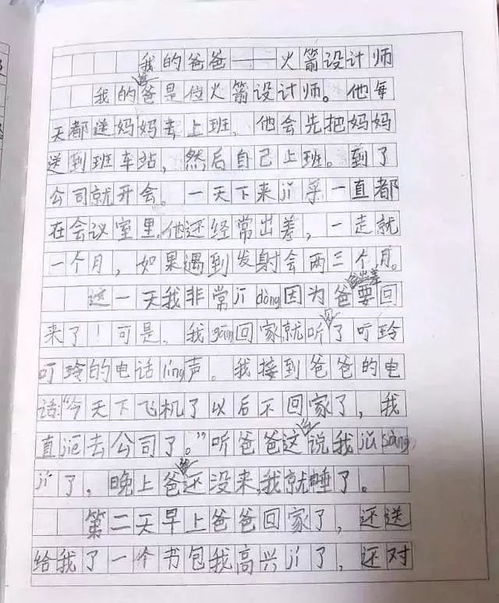 我的爸爸——火箭设计师
我的爸爸是位火箭设计师。他每
天都送妈妈去上班，他会先把妈妈
送到班车站，然后自己上班。到了
公司就开会。一天下来jī乎一直都
在会议室里。他还经常出差，一走就
一个月，如果遇到发射会两三个月。
这一天我非常jī dòng因为爸爸要回
来了！可是，我gāng回家就听了叮玲
叮玲的电话líng声。我接到爸爸的电
话：“今天下飞机了以后不回家了，我
直jiē去公司了。”听爸爸这说我jǔ sàng
jí了，晚上爸还没来，我就睡了。
第二天早上爸爸回家了，还送
给我了一个书包我高兴jí了，还对